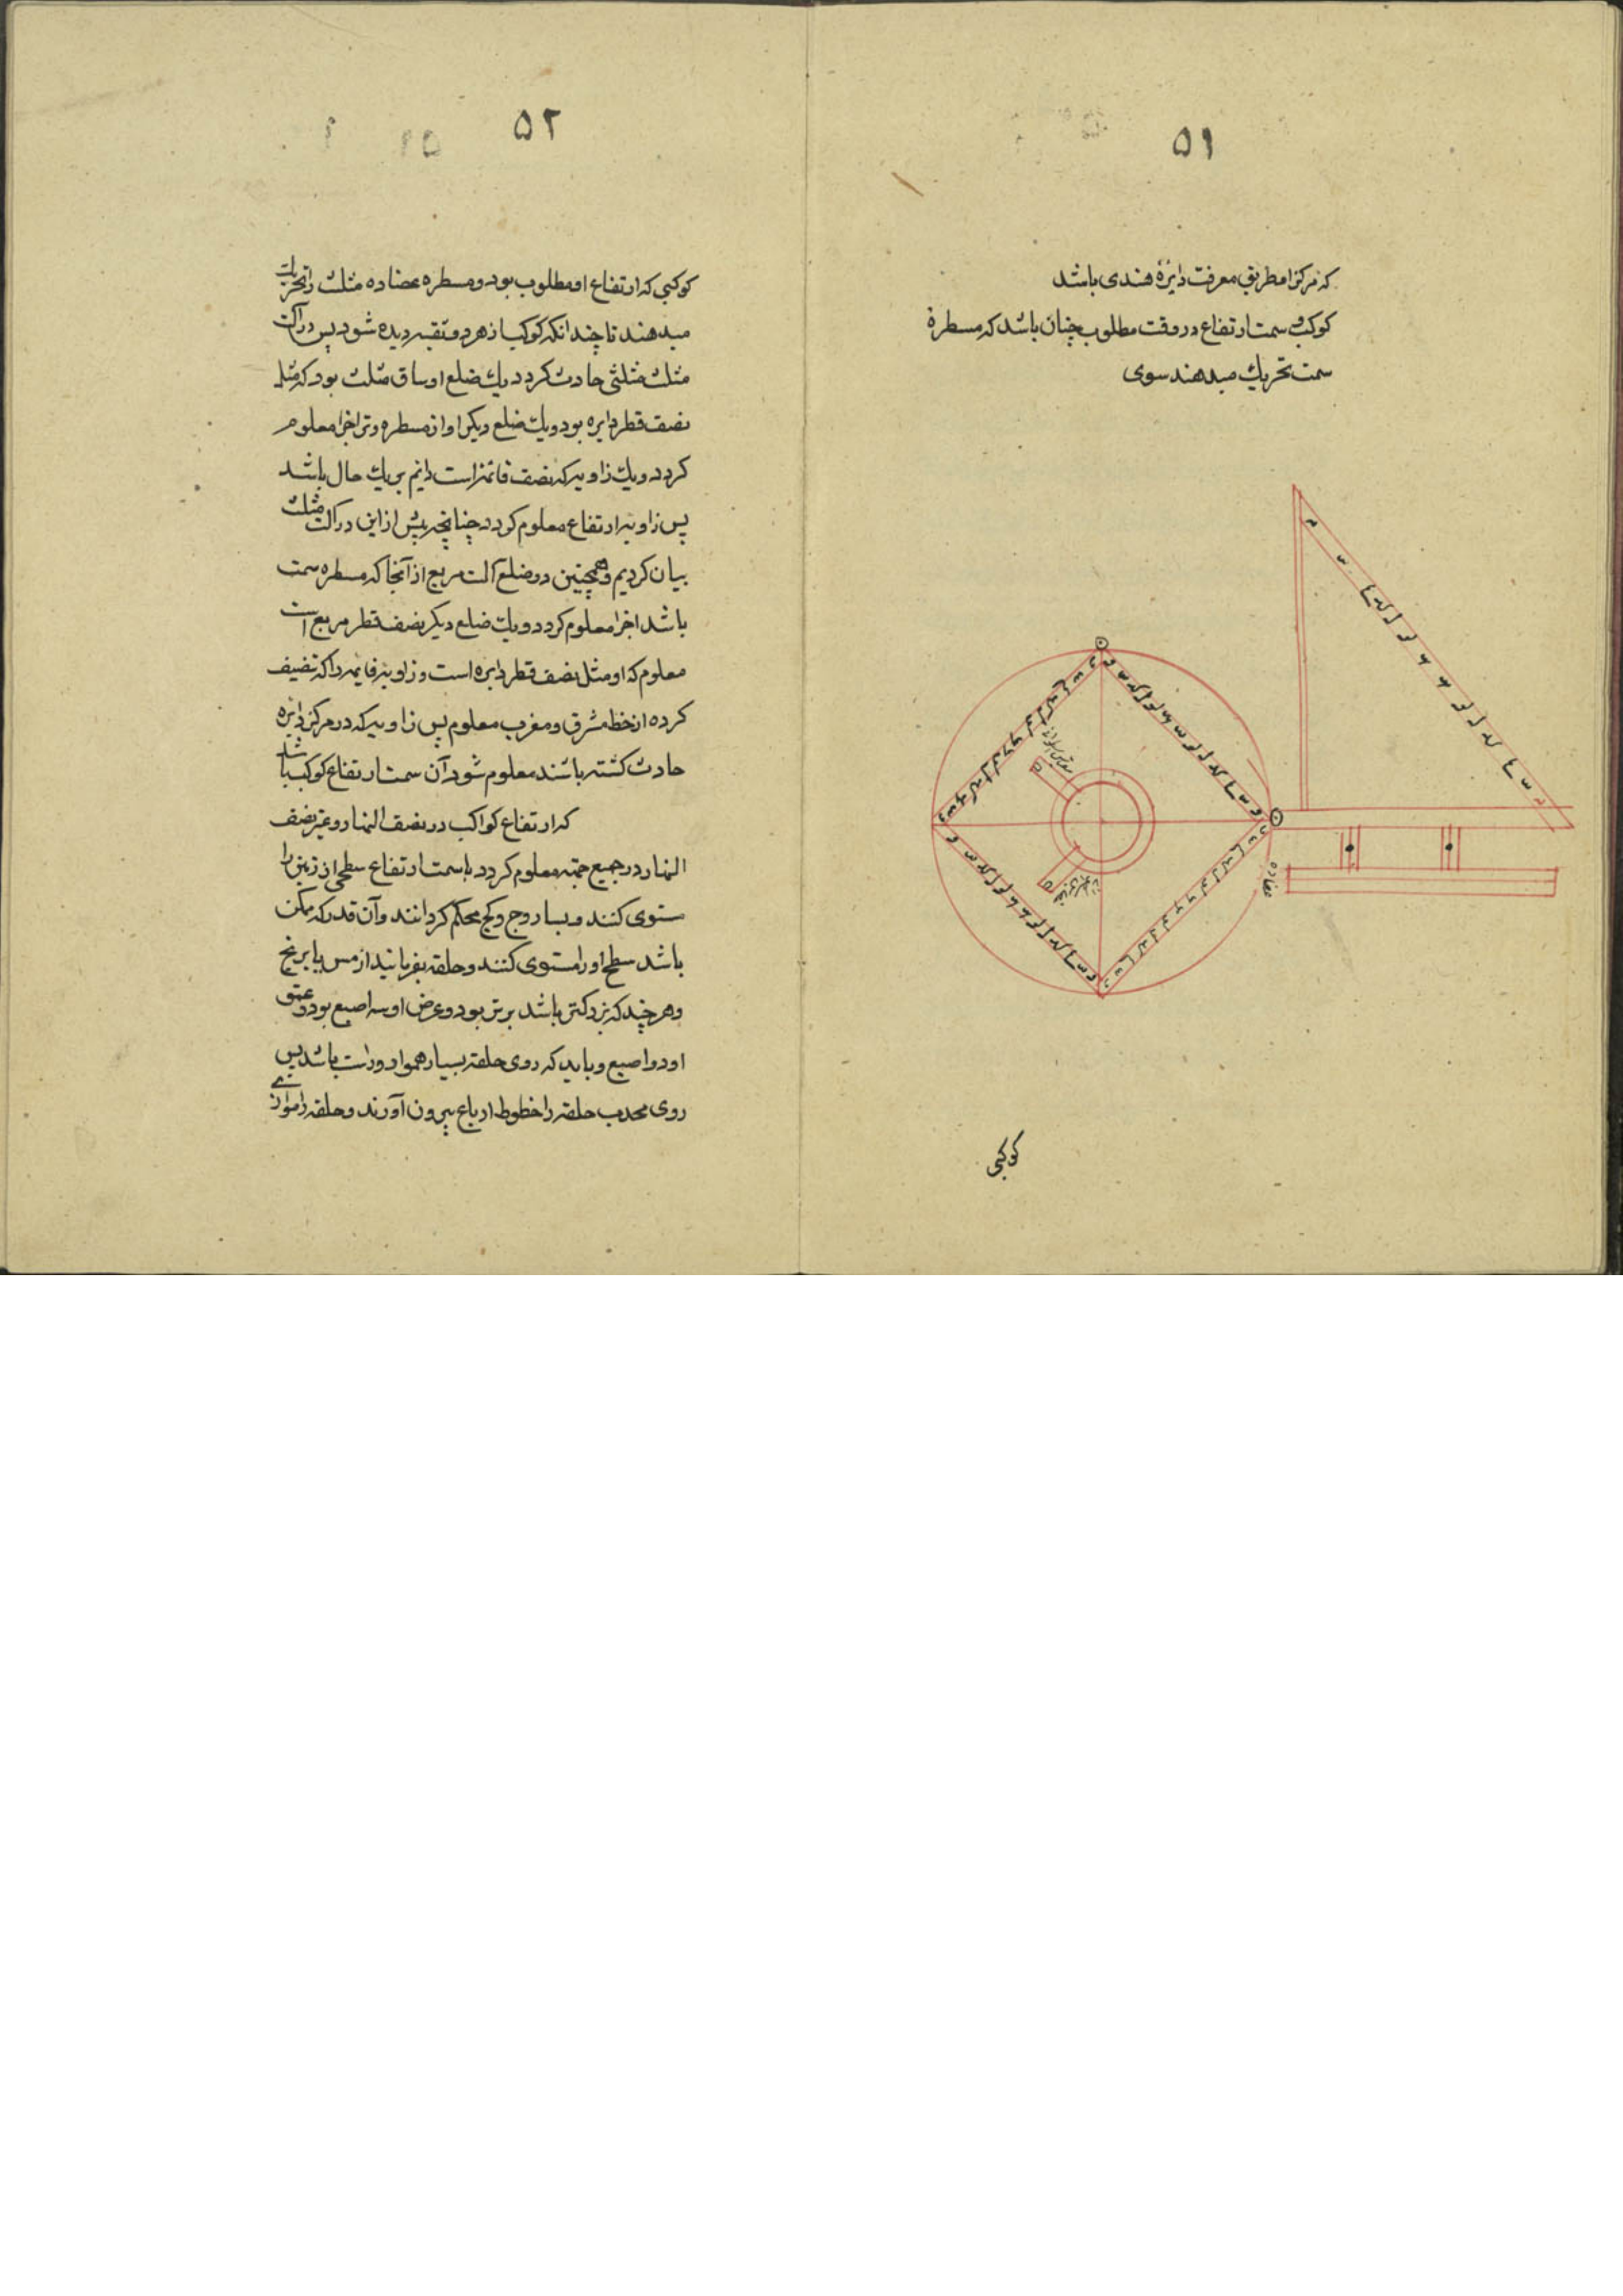 ۵۱
که مرکز را مطریق معرفت دایرۀ هندی باشد
کوکب و سمت ارتفاع در وقت مطلوب چنان باشد که مسطرۀ
سمت تحریك میدهند سوی
عضاده
کوکبی
۵۲
کوکبی که ارتفاع او مطلوب بود و مسطره عضاده مثلث را تحریك
میدهند تا چندانکه کوکب از هر دو ثقبه دیده شود پس در آلت
مثلث مثلثی حادث کردد یك ضلع او ساق مثلث بود که مثل
نصف قطر دایره بود و یك ضلع دیکر او از مسطره وتر اجزا معلوم
کردد و یك زاویه که نصف قائمه است دایم بر یك حال باشد
پس زاویه ارتفاع معلوم کردد چنانچه پیش ازاین در آلت مثلث
بیان کردیم و همچنین دو ضلع آلت مربع از آنجا که مسطره سمت
باشد اجزا معلوم کردد و یك ضلع دیکر نصف قطر مربع است
معلوم که او مثل نصف قطر دایره است و زاویه قایمه را که تنصیف
کرده از خط مشرق و مغرب معلوم پس زاویه که در مرکز دایره
حادث کشته باشند معلوم شود آن سمت ارتفاع کوکب باشد
که ارتفاع کواکب در نصف النهار و غیر نصف
النهار در جمیع جهته معلوم کردد با سمت ارتفاع سطحی از زمین را
مستوی کنند و بساروج و کج محکم کردانند و آن قدر که ممکن
باشد سطح او را مستوی کنند و حلقه بفرمایند از مس یا برنج
و هر چند که بزرکتر باشد برتر بود و عرض او سه اصبع بود و عمق
او دو اصبع و باید که روی حلقه بسیار هموار و راست باشد پس
روی محدب حلقه را خطوط ارباع بیرون آورند و حلقه را موازی